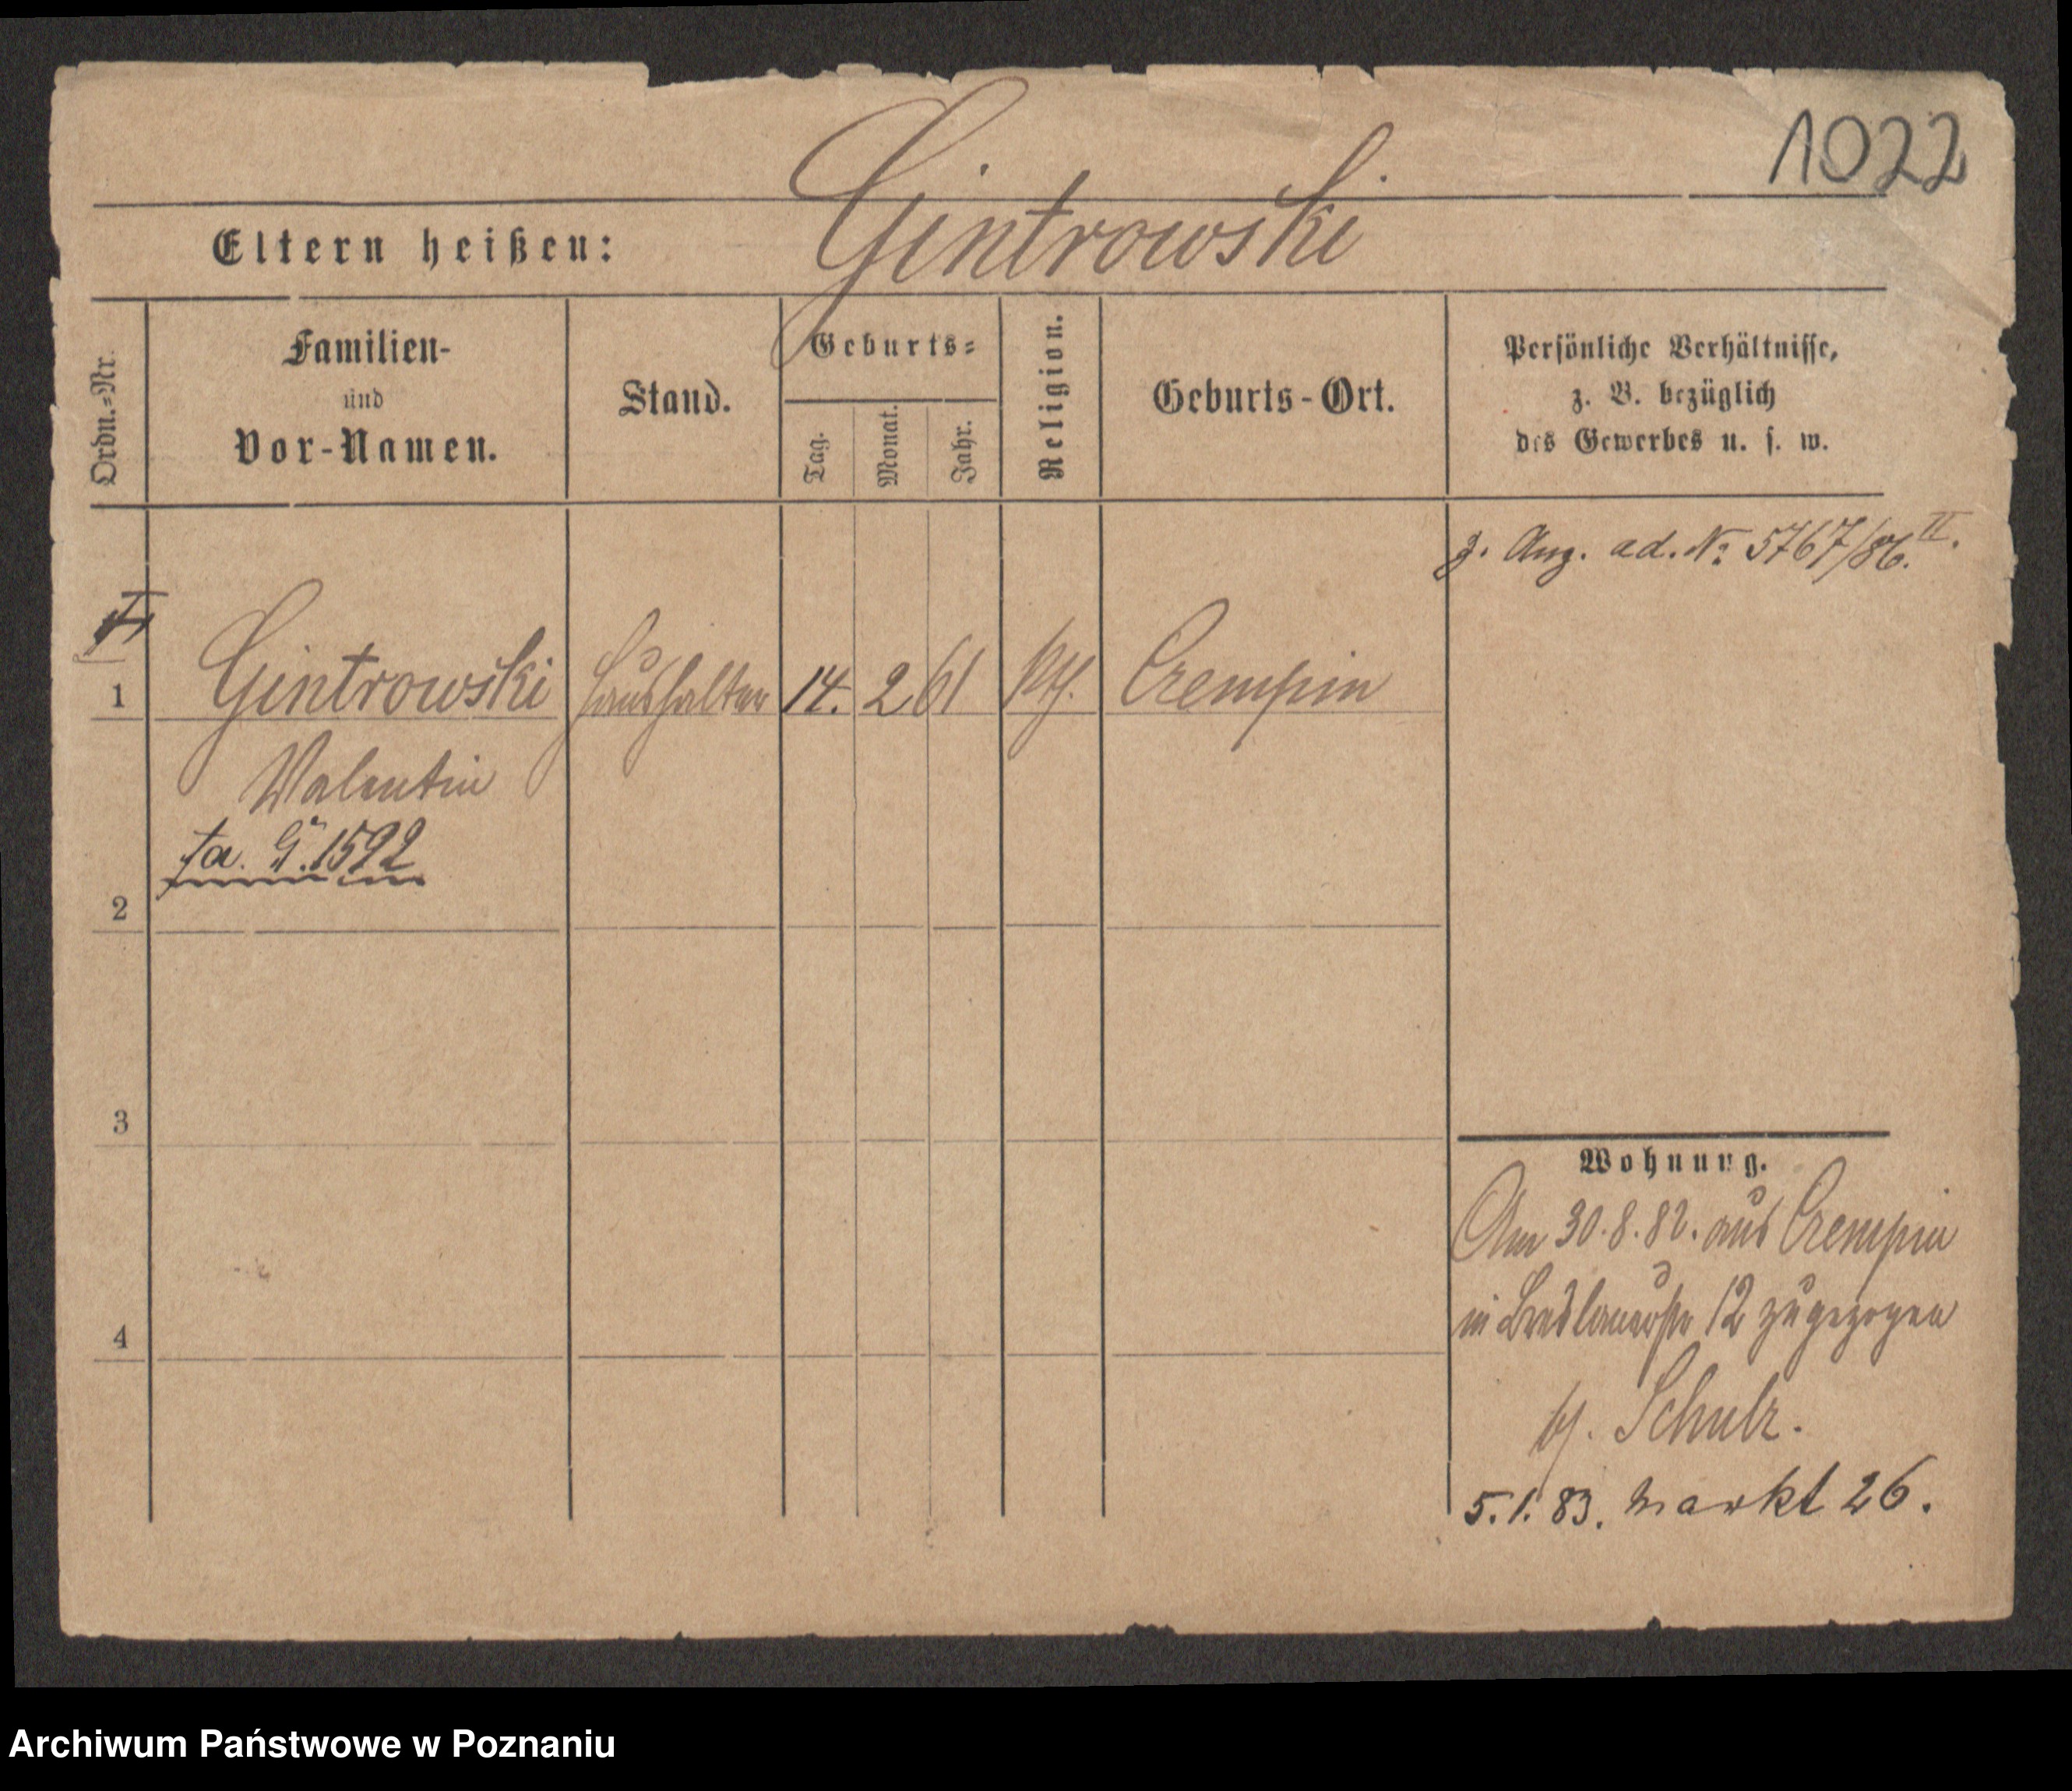 1022
Gintrowski
Eltern heißen:
Ordn.=Nr.
Familien-
und
Vor-Namen.
Stand.
Geburts=
Tag.
Monat.
Jahr.
Religion.
Geburts-Ort.
Persönliche Verhältnisse,
z. B. bezüglich
des Gewerbes u. s. w.
z. Ang. ad. No 5767/86. II.
1 Gintrowski Haushälter 14. 2 61 Czempin
Valentin
G. 1592
2
3
4
Wohnung.
Am 30.8.82. aus Czempin
in Breslauerstr 12 zugezogen
b/. Schulz.
5.1.83. Markt 26.
Archiwum Państwowe w Poznaniu